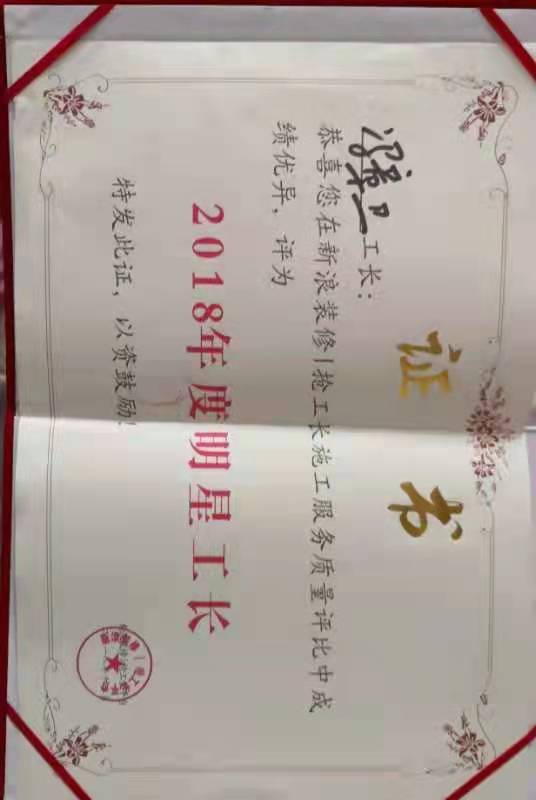 证书
工长：
恭喜您在新浪装修|抢工长施工服务质量评比中成
绩优异，评为
2018年度明星工长
特发此证，以资鼓励！